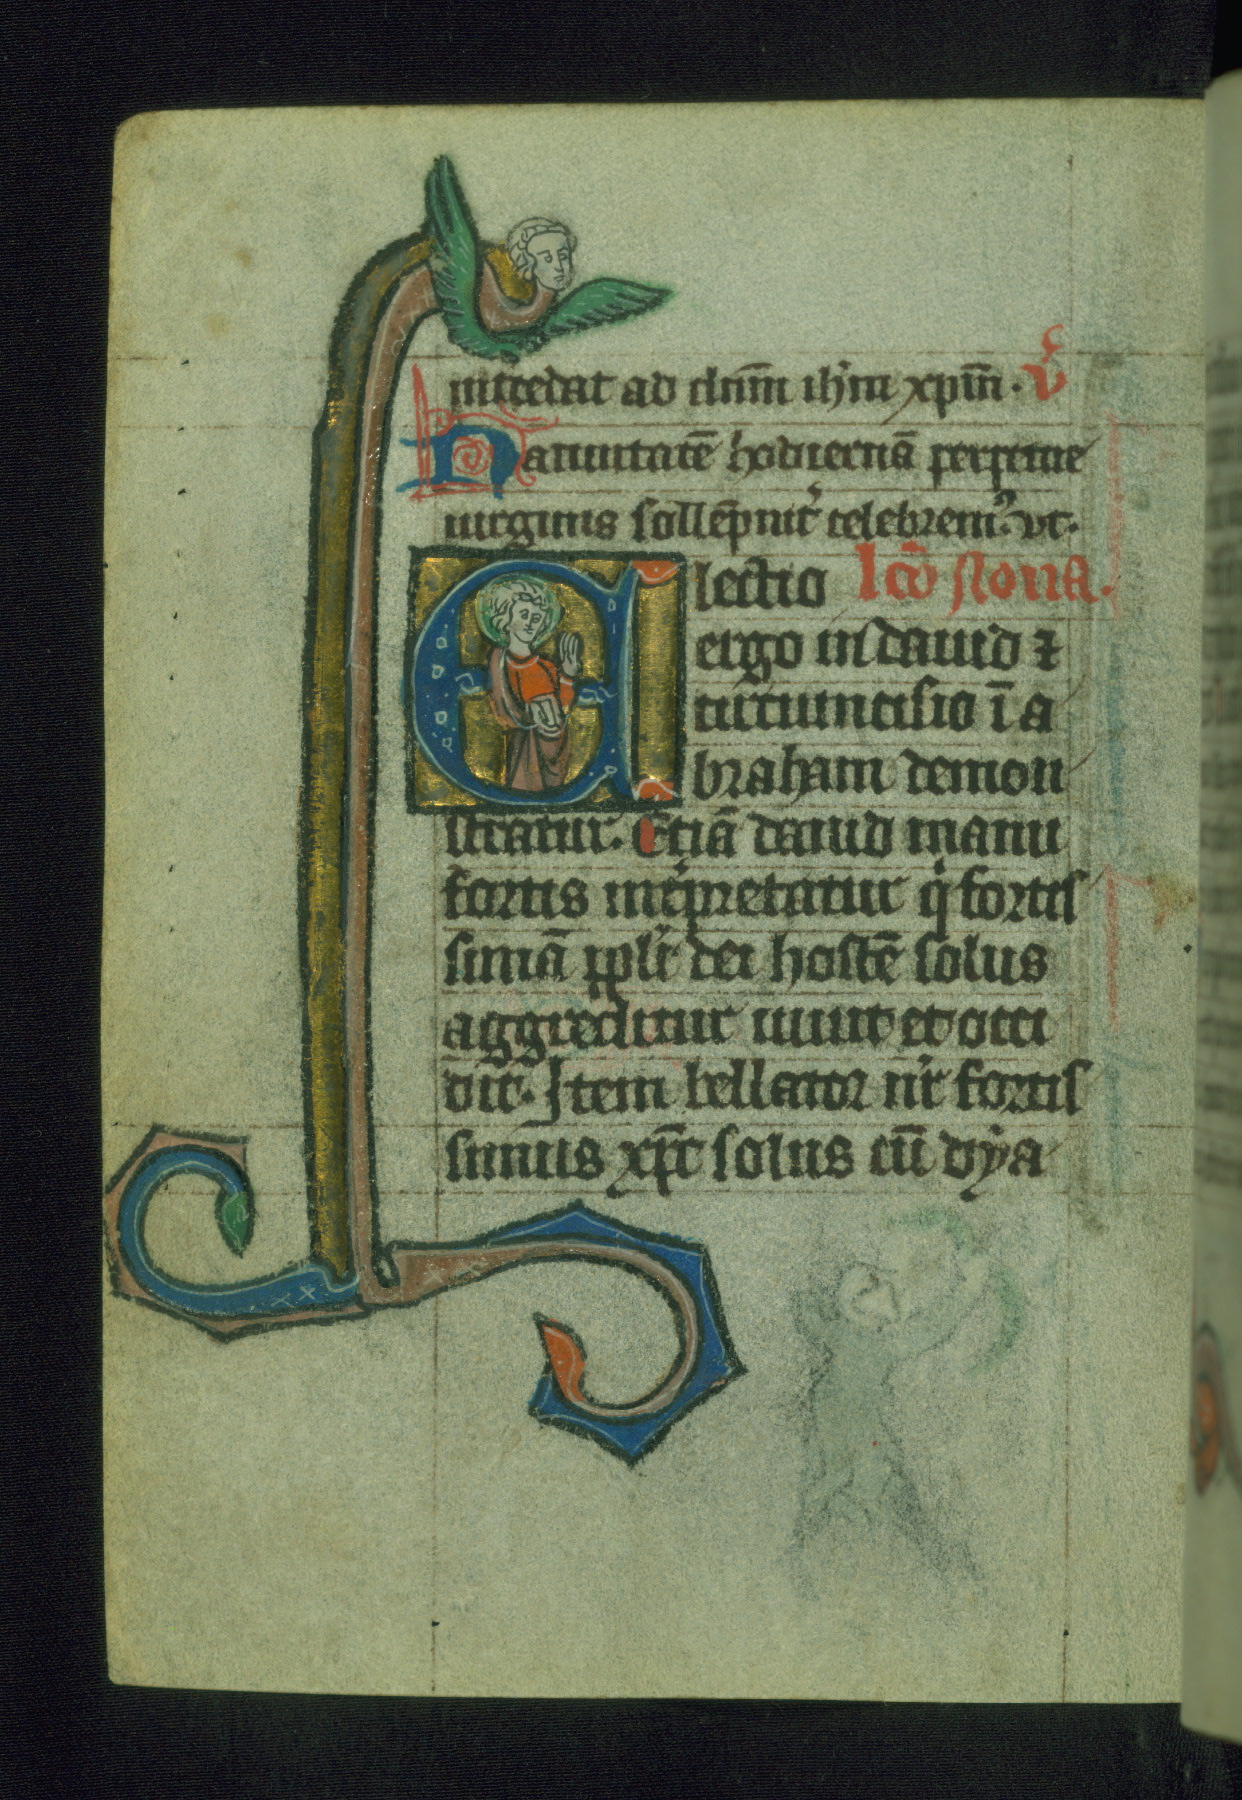 intcedat ad dnm̄ ih̄m xp̄m̄. v̄
Natiuitatē hodiernā perpetue
uirginis sollēpnit̄ celebrem᷒. vt.
Electio lc̄o Nona.
ergo in dauid ⁊
circumcisio ī a
braham demon
stratur. Etiā dauid manu
fortis int̄pretatur q̄ fortis
simū ppl̄i dei hostē solus
aggreditur uiuit et occi
dit. Item bellator nr̄ fortis
simus xp̄c solus cū dẏa